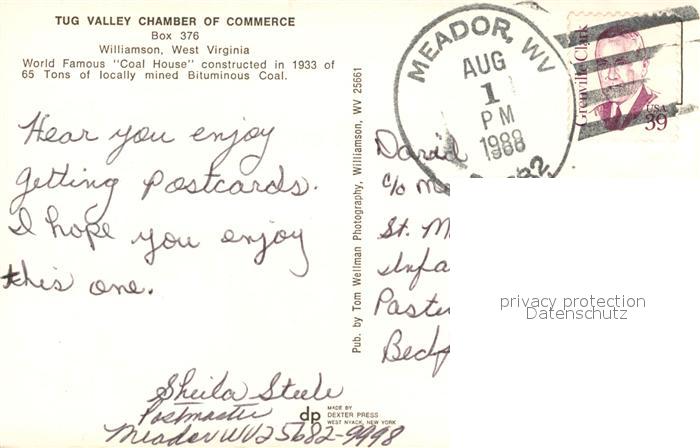 TUG VALLEY CHAMBER OF COMMERCE
Box 376
Williamson, West Virginia
World Famous "Coal House" constructed in 1933 of
65 Tons of locally mined Bituminous Coal.
Hear you enjoy
getting postcards.
I hope you enjoy
this one.
Sheila Steele
Postmaster
Meador WV 25682-9998
Pub. by Tom Wellman Photography, Williamson, WV 25661
dp
MADE BY
DEXTER PRESS
WEST NYACK, NEW YORK
MEADOR, WV
AUG
1
PM
1988
Grenville Clark
USA
39
David
c/o M
St. M
Infa
Paste
Bedf
privacy protection
Datenschutz